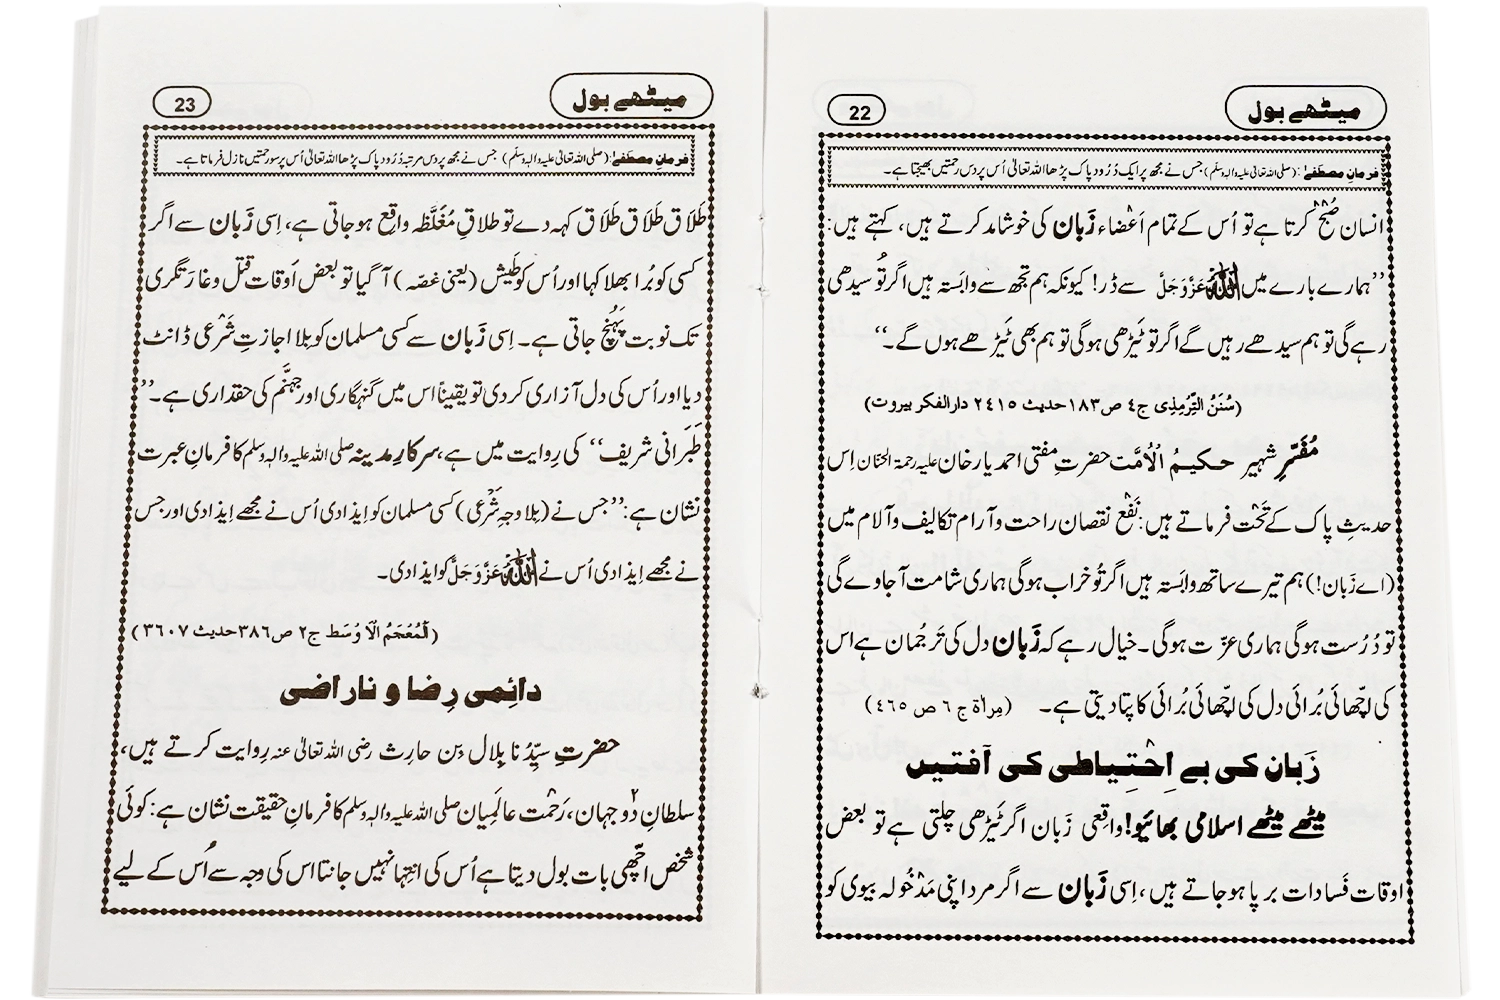 میٹھے بول
22
فرمانِ مصطفٰے: (صلی اللہ تعالیٰ علیہ والہٖ وسلّم) جس نے مجھ پر ایک دُرُود پاک پڑھا اللہ تعالیٰ اُس پر دس رحمتیں بھیجتا ہے۔
انسان صُبْح کرتا ہے تو اُس کے تمام اَعْضاء زَبان کی خوشامد کرتے ہیں، کہتے ہیں:
”ہمارے بارے میں اللہ عَزَّوَجَلَّ سے ڈر! کیونکہ ہم تجھ سے وابَستہ ہیں اگر تُو سیدھی
رہے گی تو ہم سیدھے رہیں گے اگر تو ٹَیڑھی ہوگی تو ہم بھی ٹَیڑھے ہوں گے۔“
(سُنَنُ التِّرمِذِی ج٤ ص١٨٣ حدیث ٢٤١٥ دارالفکر بیروت)
مُفَسّرِ شہیر حکیمُ الْاُمَّت حضرتِ مفتی احمد یار خان علیہ رحمۃ الحنّان اِس
حدیثِ پاک کے تَحْت فرماتے ہیں: نَفْع نقصان راحت و آرام تکالیف و آلام میں
(اے زَبان!) ہم تیرے ساتھ وابَستہ ہیں اگر تُو خراب ہوگی ہماری شامت آجاوے گی
تو دُرُست ہوگی ہماری عزّت ہوگی۔ خیال رہے کہ زَبان دل کی تَرجُمان ہے اس
کی اچّھائی بُرائی دل کی اچّھائی بُرائی کا پتا دیتی ہے۔ (مِراٰۃ ج ٦ ص ٤٦٥)
زَبان کی بے اِحْتِیاطی کی آفتیں
میٹھے میٹھے اسلامی بھائیو! واقِعی زَبان اگر ٹَیڑھی چلتی ہے تو بعض
اوقات فَسادات برپا ہوجاتے ہیں، اِسی زَبان سے اگر مرد اپنی مَدْخُولہ بیوی کو
میٹھے بول
23
فرمانِ مصطفٰے: (صلی اللہ تعالیٰ علیہ والہٖ وسلّم) جس نے مجھ پر دس مرتبہ دُرُود پاک پڑھا اللہ تعالیٰ اُس پر سو رحمتیں نازل فرماتا ہے۔
طَلَاق طَلَاق طَلَاق کہہ دے تو طلاقِ مُغَلَّظہ واقِع ہوجاتی ہے، اِسی زَبان سے اگر
کسی کو بُرا بھلا کہا اور اُس کو طَیش (یعنی غصّہ) آگیا تو بعض اَوقات قتل و غارَتگری
تک نوبت پَہُنچ جاتی ہے۔ اِسی زَبان سے کسی مسلمان کو بِلا اجازتِ شَرْعی ڈانٹ
دیا اور اُس کی دل آزاری کردی تو یقیناً اس میں گنہگاری اور جہنَّم کی حقداری ہے۔”
طَبَرانی شریف“ کی رِوایت میں ہے، سرکارِ مدینہ صلی اللہ علیہ والہٖ وسلم کا فرمانِ عبرت
نشان ہے: ”جس نے (بِلا وجہِ شَرْعی) کسی مسلمان کو ایذا دی اُس نے مجھے ایذا دی اور جس
نے مجھے ایذا دی اُس نے اللہ عَزَّوَجَلَّ کو ایذا دی۔
(اَلْمُعْجَمُ الْاَوْسَط ج٢ ص٣٨٦ حدیث ٣٦٠٧)
دائِمی رِضا و ناراضی
حضرتِ سیِّدُنا بِلال بن حارِث رضی اللہ تعالیٰ عنہ رِوایت کرتے ہیں،
سلطانِ دُو جہان، رَحْمت عالمیان صلی اللہ علیہ والہٖ وسلم کا فرمانِ حقیقت نشان ہے: کوئی
شخص اچّھی بات بول دیتا ہے اُس کی انتِہا نہیں جانتا اس کی وجہ سے اُس کے لیے